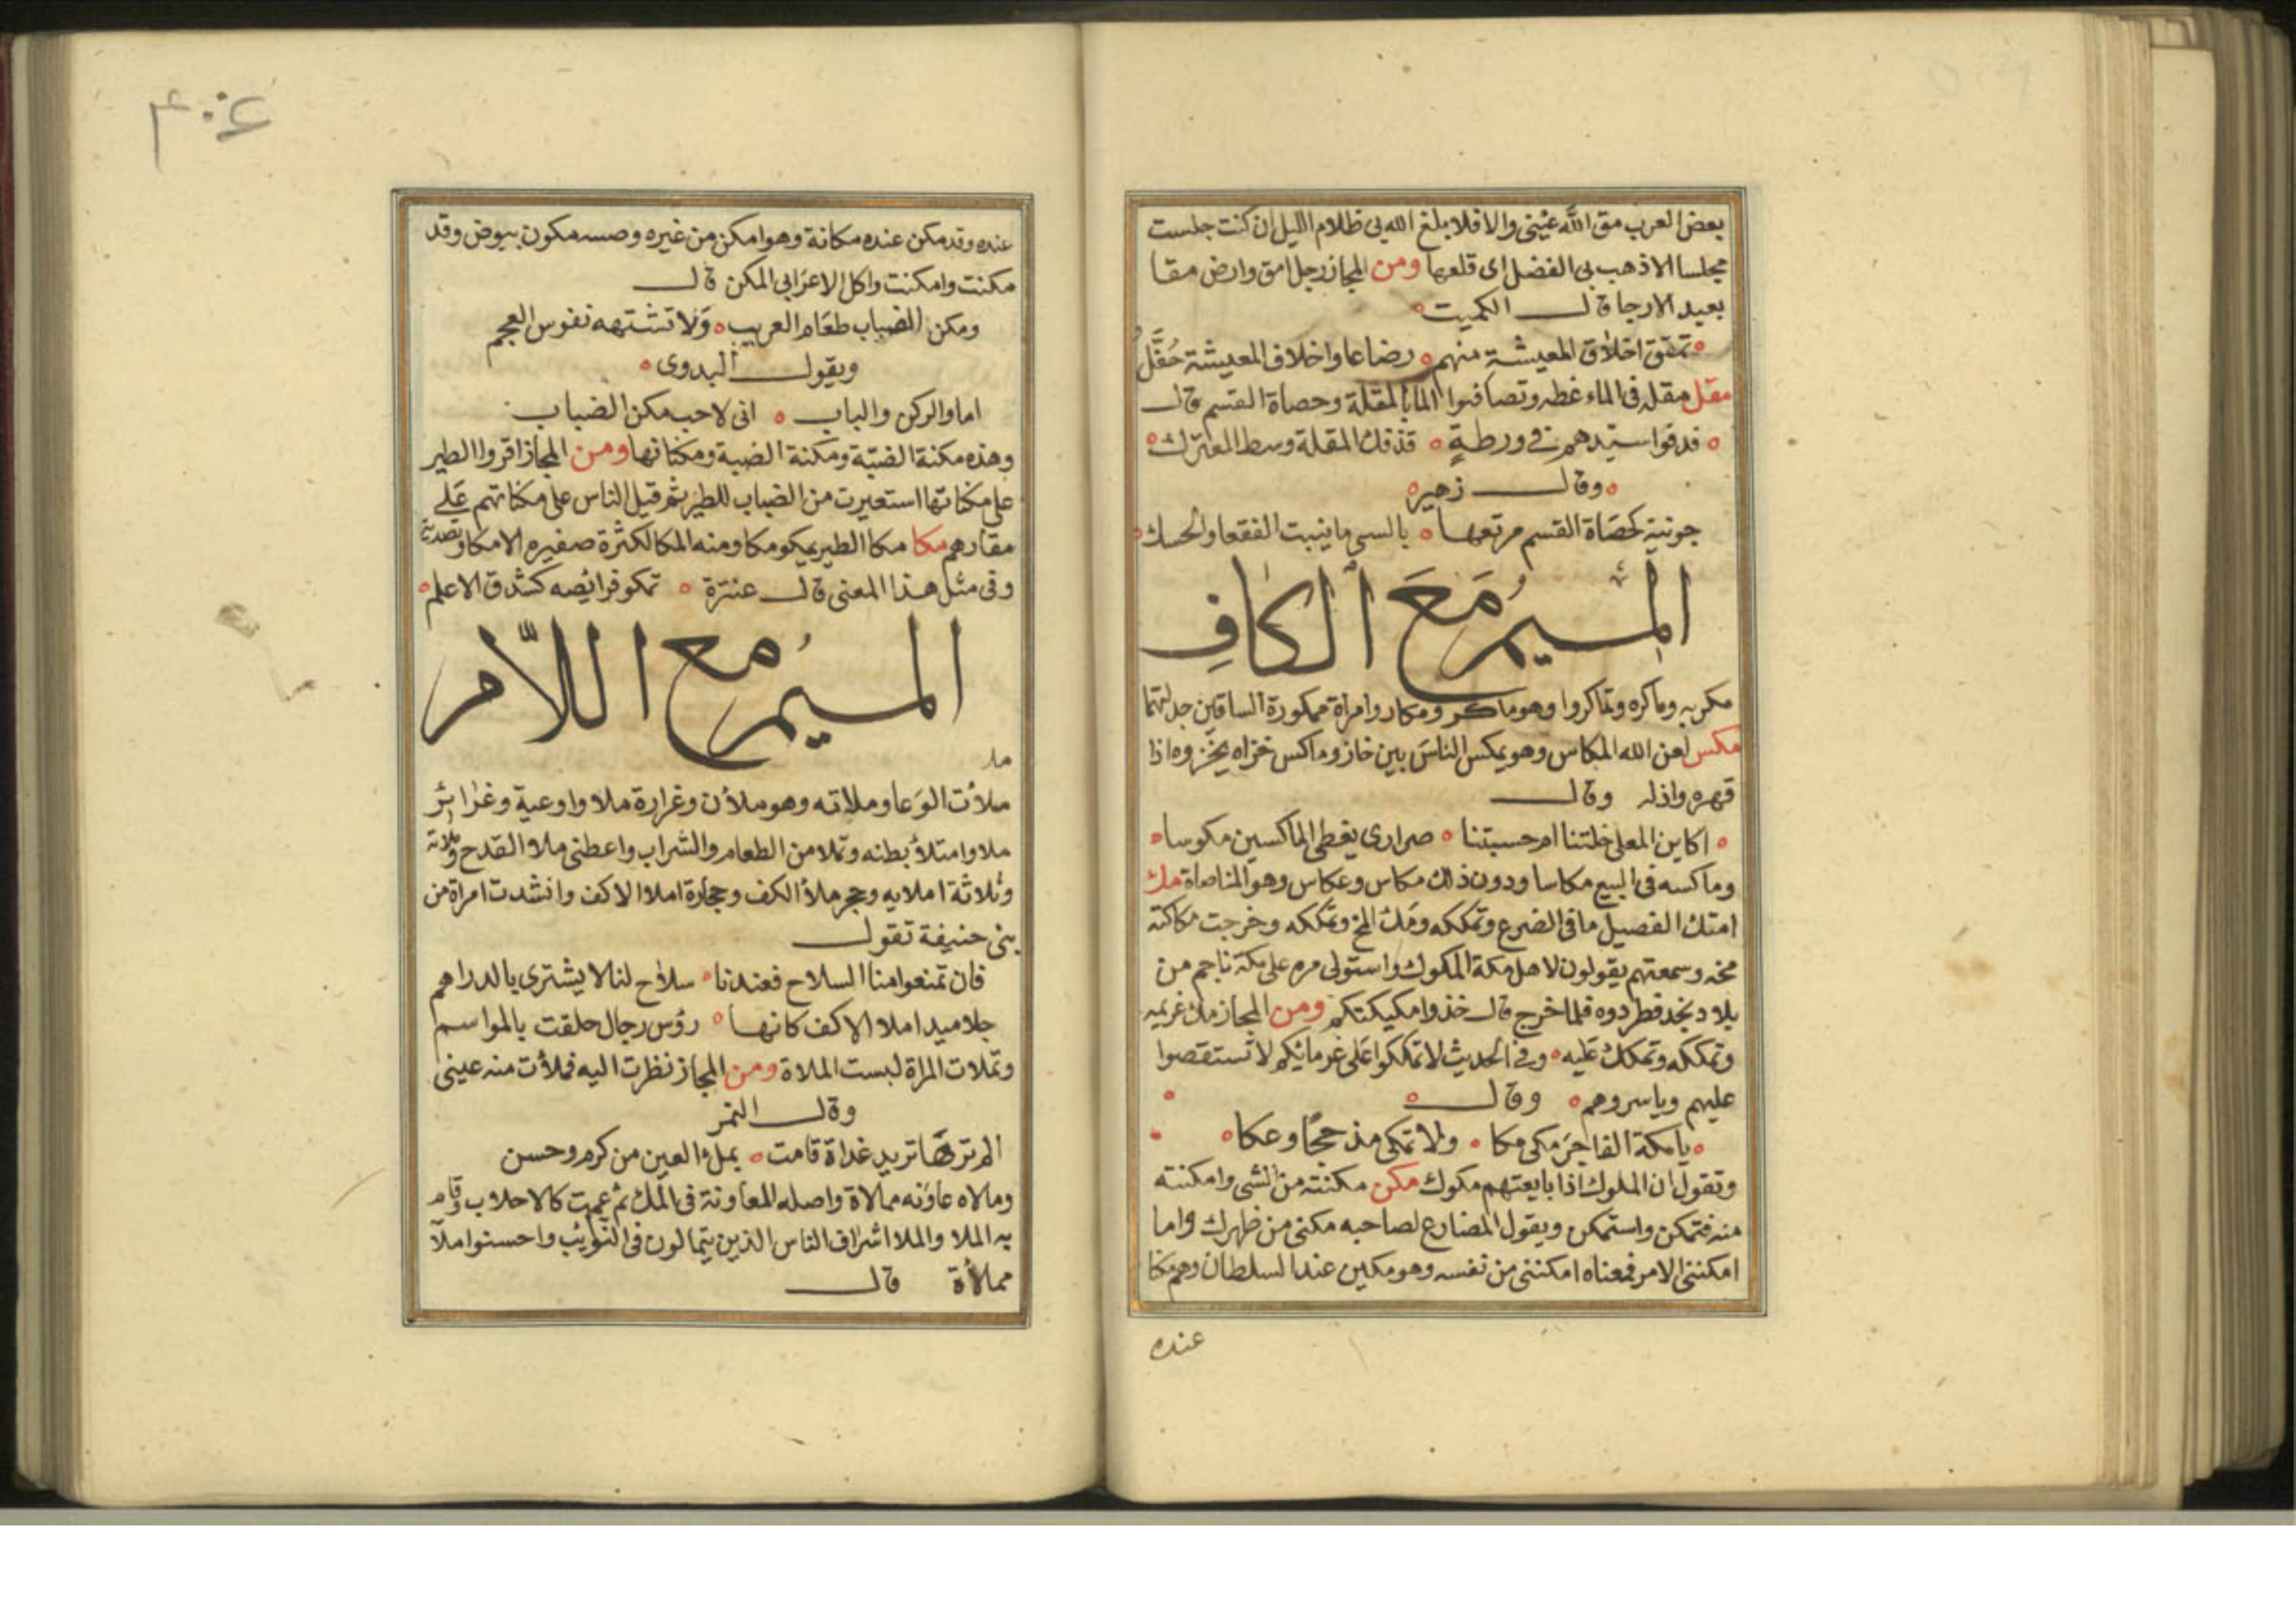 بعض العرب مق الله عيني والا فلا بلغ الله بي ظلام الليل ان كنت جلست
مجلسا الا ذهب بي الفضل اى قلعها ومن المجاز رجل امق وارض مقا
بعيد الارجا قال الكميت
تمقق اخلاق المعيشة منهم رضاعا واخلاف المعيشة حفل
مقل مقله في الماء غطه وتصافنوا الما بالمقلة وحصاة القسم قال
قدفوا سيدهم في ورطة قذفك المقلة وسط المعترك
وقال زهير
جونية كحصاة القسم مرتعها بالسي ما ينبت الفقعا والحسك
الميم مع الكاف
مكر به وماكره وتماكروا وهو ماكر ومكار وامراة ممكورة الساقين جدلتهما
مكس لعن الله المكاس وهو يمكس الناس بين خاز وماكس خزاه يخزوه اذا
قهره واذله وقال
اكابن المعلى خلتنا ام حسبتنا صرارى يعطى الماكسين مكوسا
وماكسه في البيع مكاسا ودون ذلك مكاس وعكاس وهو المناصاة مك
امتك الفصيل ما في الضرع وتمككه ومك المخ وتمككه وخرجت مكاكته
مخه وسمعتهم يقولون لاهل مكة المكوك واستولى مره على مكة ناجم من
بلاد نجد فطردوه فلما خرج قال خذوا مكيكتكم ومن المجاز مك غريمه
وتمككه وتمكك عليه وفي الحديث لا تمككوا على غرمائكم لا تستقصوا
عليهم وياسروهم وقال
يا مكة الفاجر مكي مكا ولا تمكي مذحجا وعكا
وتقول ان الملوك اذا بايعتهم مكوك مكن مكنته من الشي وامكنته
منه فتمكن واستمكن ويقول المضارع لصاحبه مكنى من ظهرك واما
امكنني الامر فمعناه امكننى من نفسه وهو مكين عند السلطان وهم مكنا
عنده
٤٠٤
عنده وقد مكن عنده مكانة وهو امكن من غيره وضبه مكون بيوض وقد
مكنت وامكنت واكل الاعرابي المكن قال
ومكن الضباب طعام العريب ولا تشتهه نفوس العجم
ويقول البدوى
اما والركن والباب انى لاحب مكن الضباب
وهذه مكنة الضبة ومكنة الضبة ومكناتها ومن المجاز اقروا الطير
على مكناتها استعيرت من الضباب للطير ثم قيل الناس على مكناتهم على
مقارهم مكا مكا الطير يمكو مكا ومنه المكا لكثرة صفيره الا مكا وتصدية
وفي مثل هذا المعنى قال عنترة تمكو فرائصه كشدق الاعلم
الميم مع اللام
ملا
ملأت الوعا وملاته وهو ملأن وغرارة ملا واوعية وغرائر
ملا وامتلأ بطنه وتملا من الطعام والشراب واعطني ملا القدح وملاته
وثلاثة املايه وحجر ملأ الكف وحجارة املا الاكف وانشدت امراة من
بنى حنيفة تقول
فان تمنعوا منا السلاح فعندنا سلاح لنا لا يشترى بالدراهم
جلاميد املا الاكف كانها رؤس رجال حلقت بالمواسم
وتملات المراة لبست الملاة ومن المجاز نظرت اليه فملأت منه عينى
وقال النمر
الم ترها تريد غداة قامت بملء العين من كرم وحسن
ومالاه عاونه ممالاة واصله المعاونة في الملء ثم عمت كالاحلاب وقام
به الملا والملا اشراف الناس الذين يتمالون في النوايب واحسنوا املآ
ممالأة قال